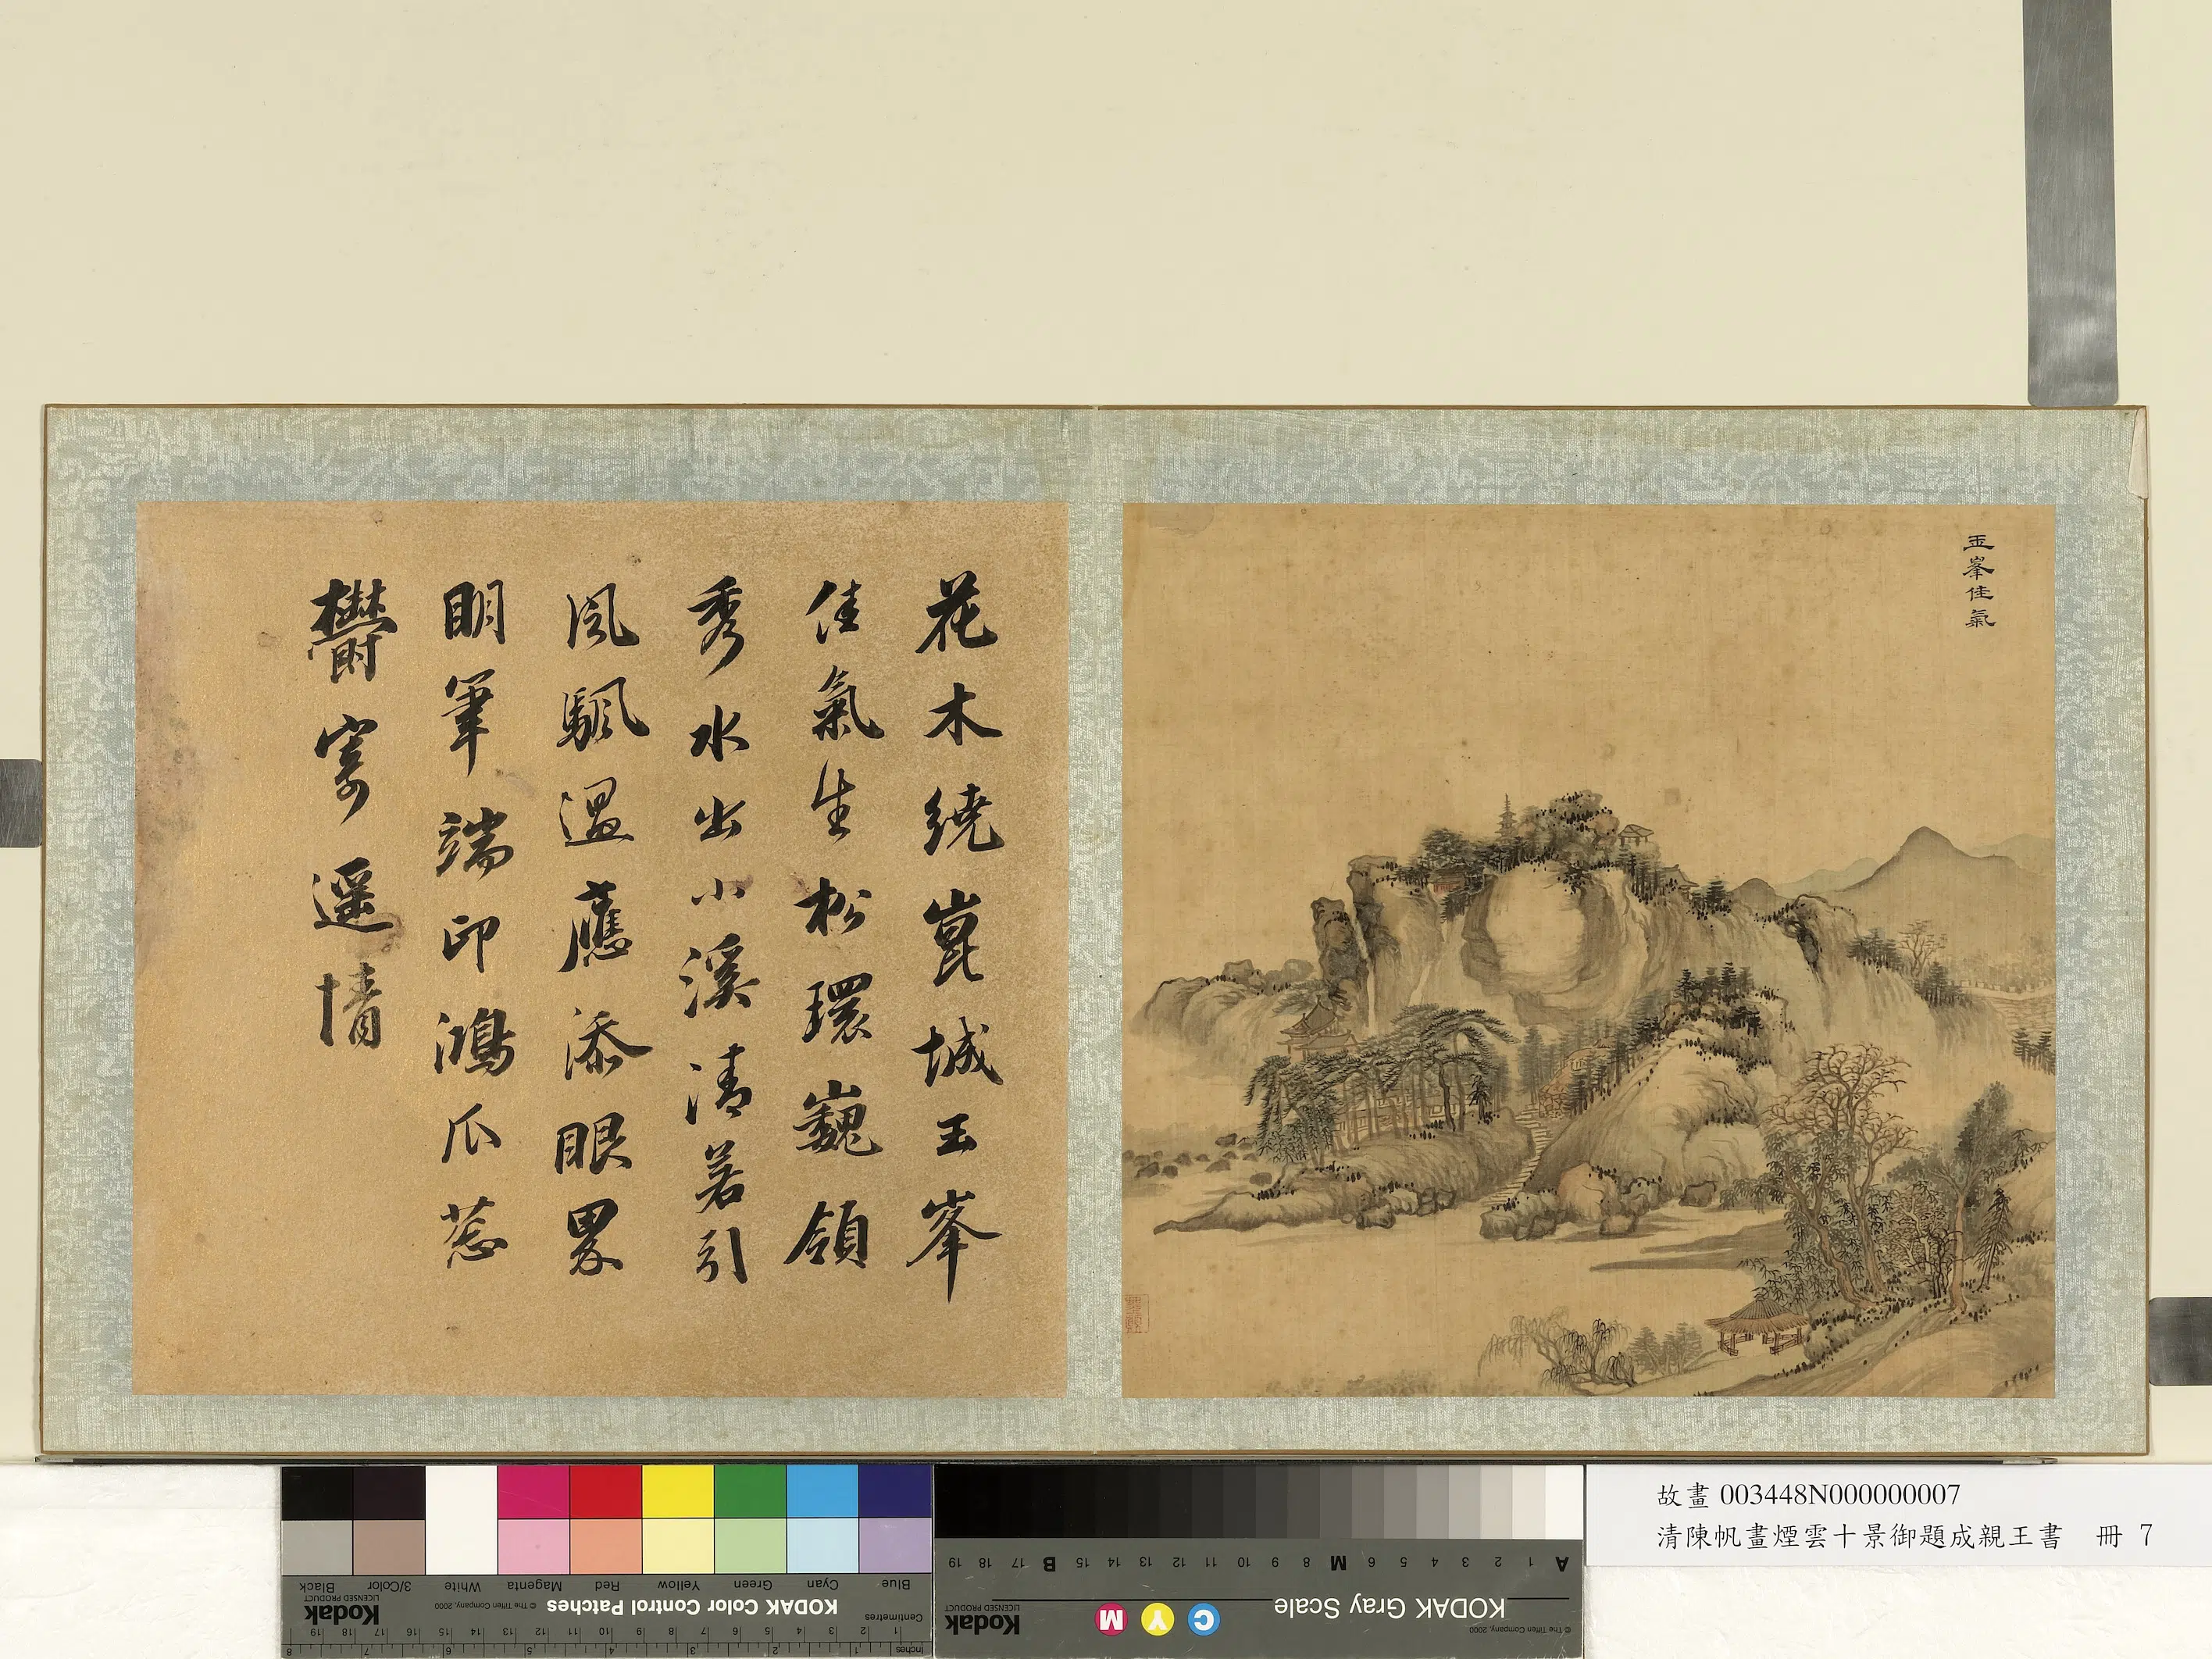 玉峯佳氣
花木繞崑城玉峯
佳氣生松環巍領
秀水出小溪清若引
風颿遥應添眼界
明筆端印鴻爪惹
欝寄遥情
故畫 003448N000000007
清陳帆畫煙雲十景御題成親王書 冊 7
Blue Cyan Green Yellow Red Magenta White 3/Color Black
KODAK Color Control Patches
© The Tiffen Company, 2000
Kodak
LICENSED PRODUCT
Centimetres
Inches
KODAK Gray Scale
C Y M
Kodak
LICENSED PRODUCT
© The Tiffen Company, 2000
A 1 2 3 4 5 6 M 8 9 10 11 12 13 14 15 B 17 18 19